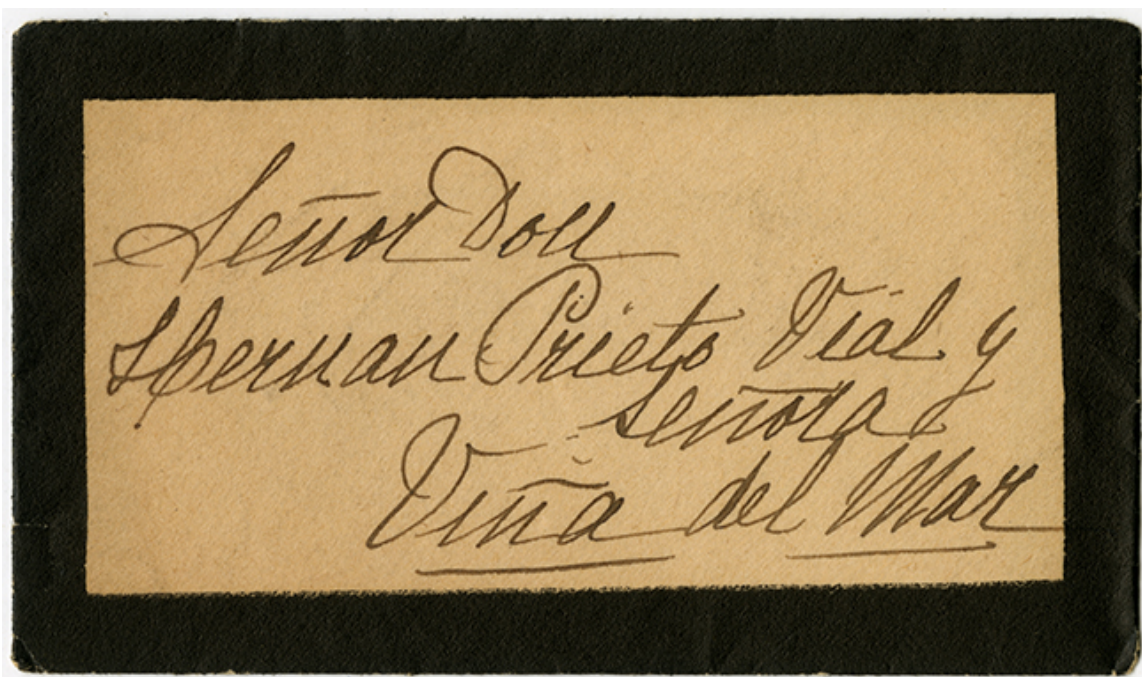 Señor Don
Hernan Prieto Vial y
señora
Viña del Mar